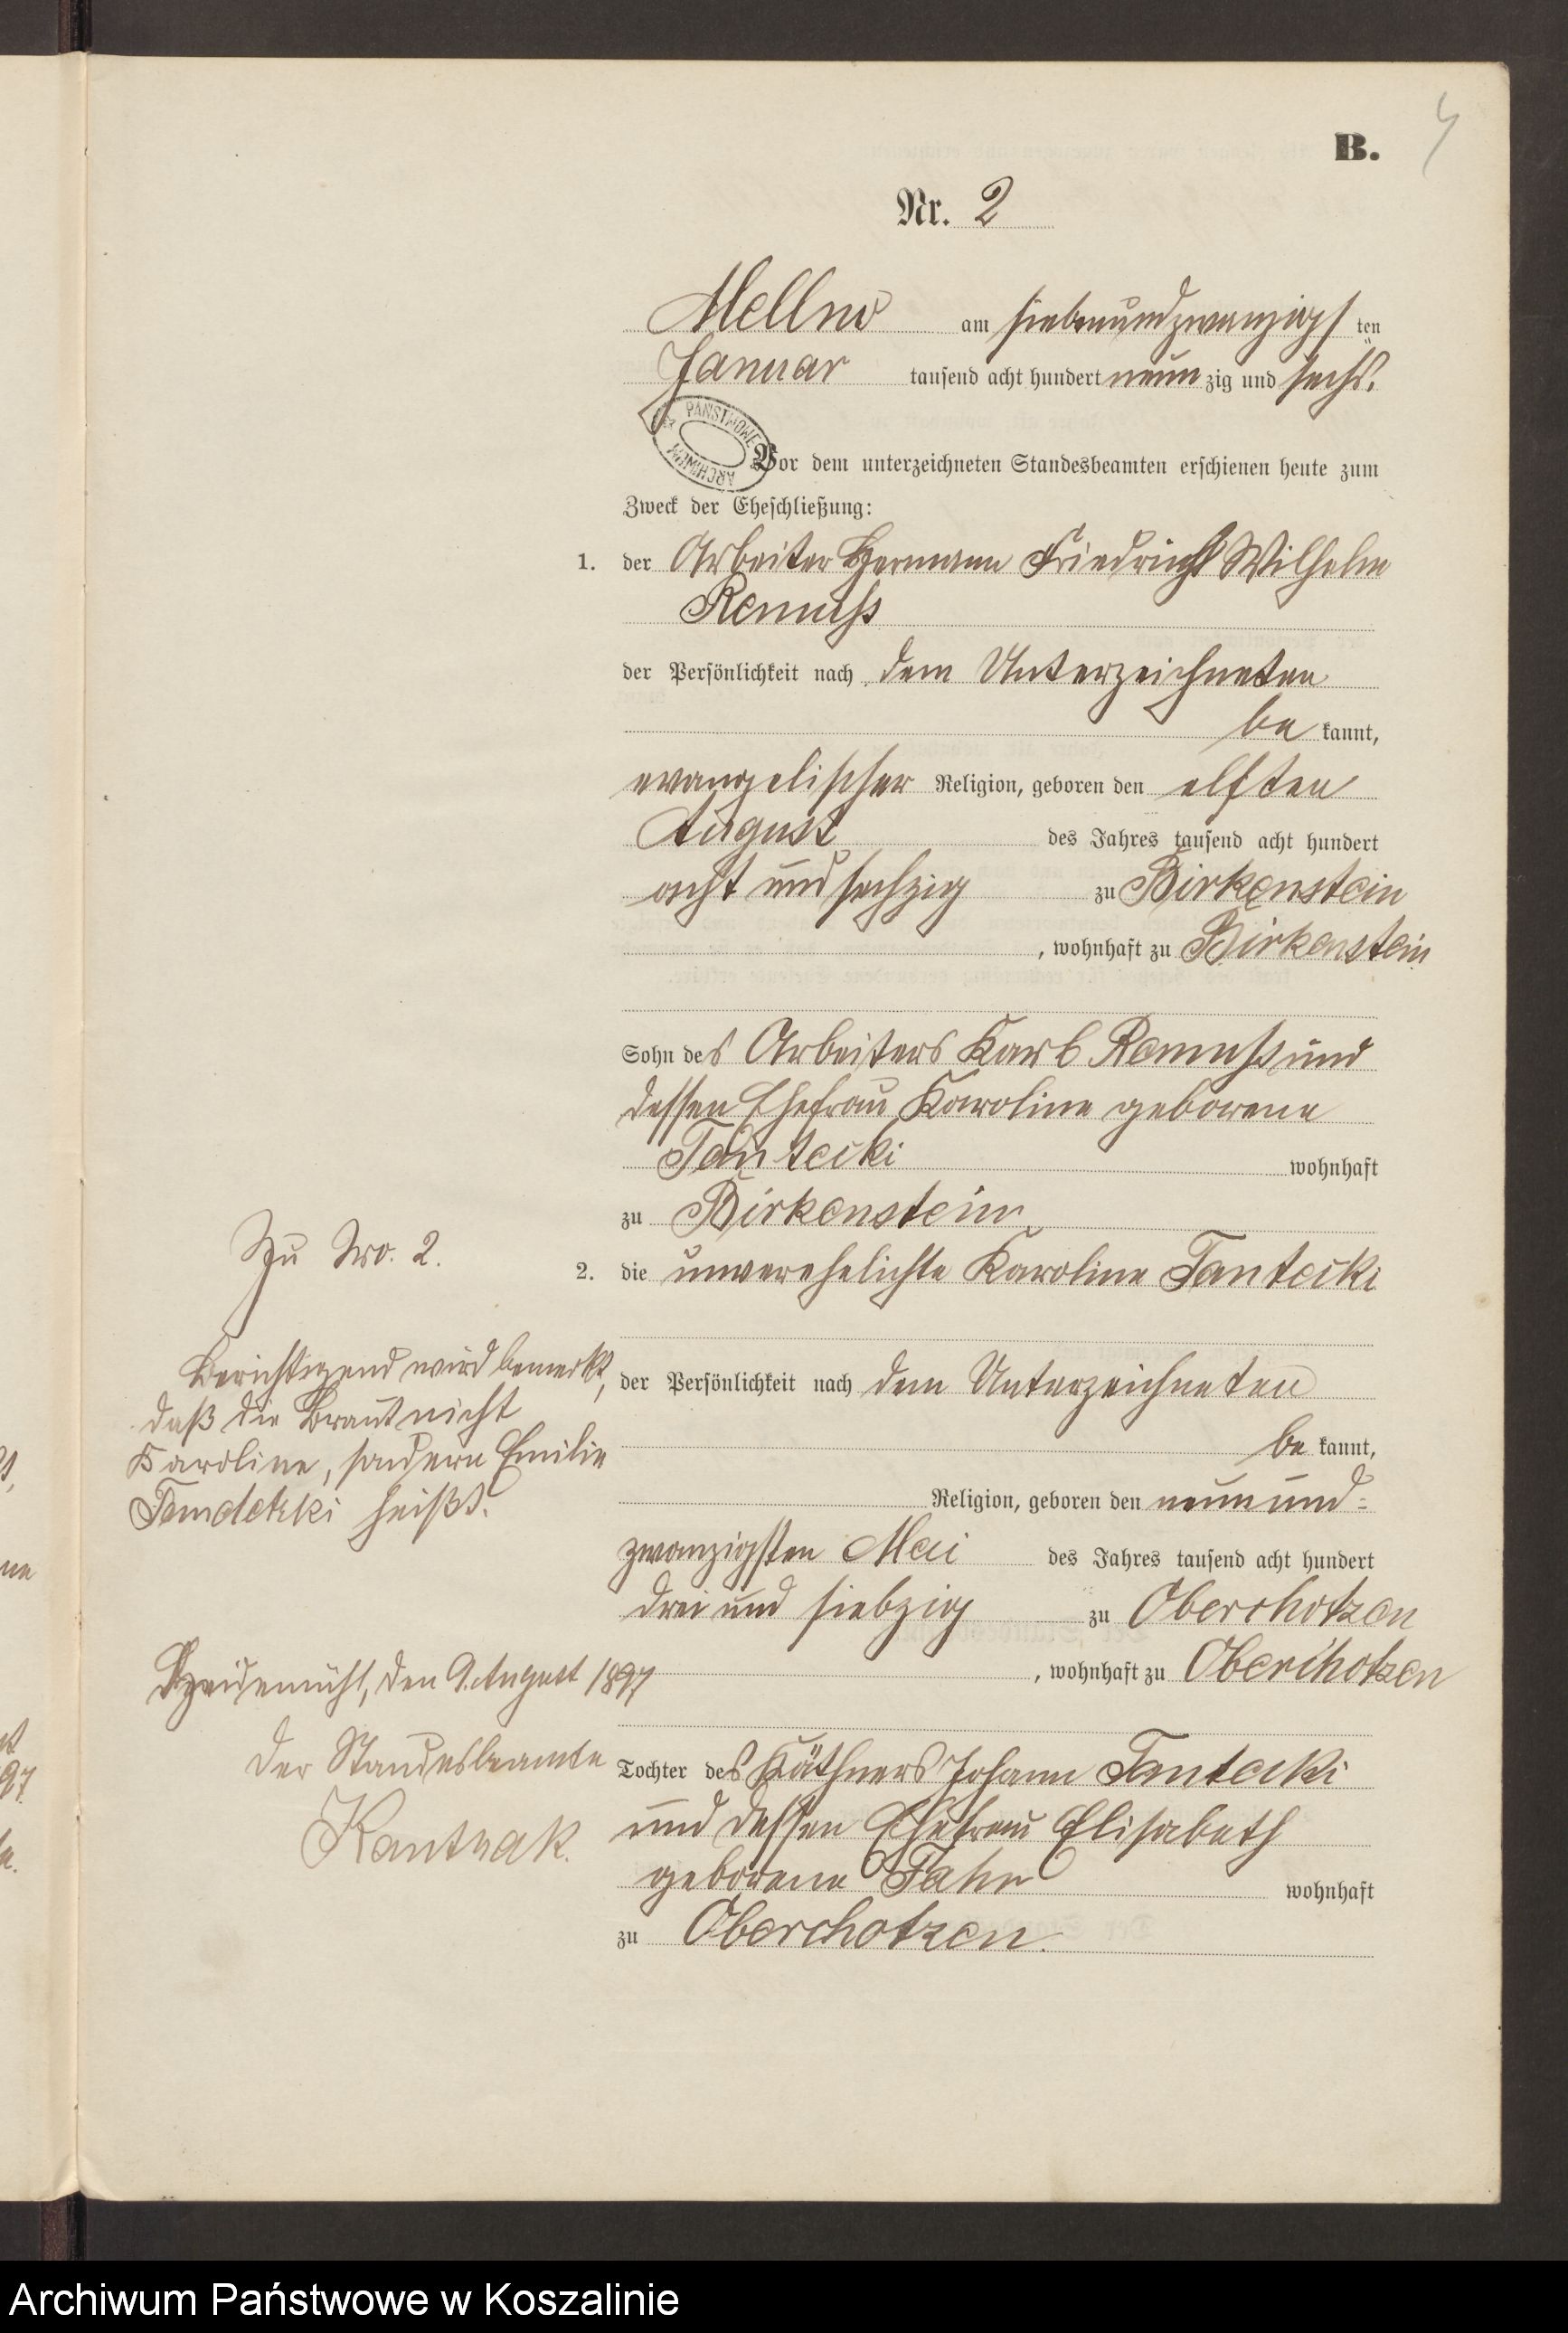 B.
4
Nr. 2
Mellno am siebenundzwanzigsten
Januar tausend acht hundert neunzig und sechs.
ARCHIWUM PAŃSTWOWE
Vor dem unterzeichneten Standesbeamten erschienen heute zum
Zweck der Eheschließung:
1. der Arbeiter Hermann Friedrich Wilhelm
Remuss
der Persönlichkeit nach dem Unterzeichneten
bekannt,
evangelischer Religion, geboren den elften
August des Jahres tausend acht hundert
acht und sechzig zu Birkenstein
, wohnhaft zu Birkenstein
Sohn des Arbeiters Karl Remuss und
dessen Ehefrau Karoline geborene
wohnhaft
zu Birkenstein
2. die unverehelichte Karoline Tantecki
der Persönlichkeit nach dem Unterzeichneten
bekannt,
Religion, geboren den neunund-
zwanzigsten Mai des Jahres tausend acht hundert
drei und siebzig zu Oberchotzen
, wohnhaft zu Oberchotzen
Tochter des Käthners Johann Tantecki
und dessen Ehefrau Elisabeth
geborene wohnhaft
zu Oberchotzen.
Zu No. 2.
Berichtigend wird bemerkt,
daß die Braut nicht
Karoline, sondern Emilie
heißt.
Heidemühl, den 9. August 1897
Der Standesbeamte
Archiwum Państwowe w Koszalinie